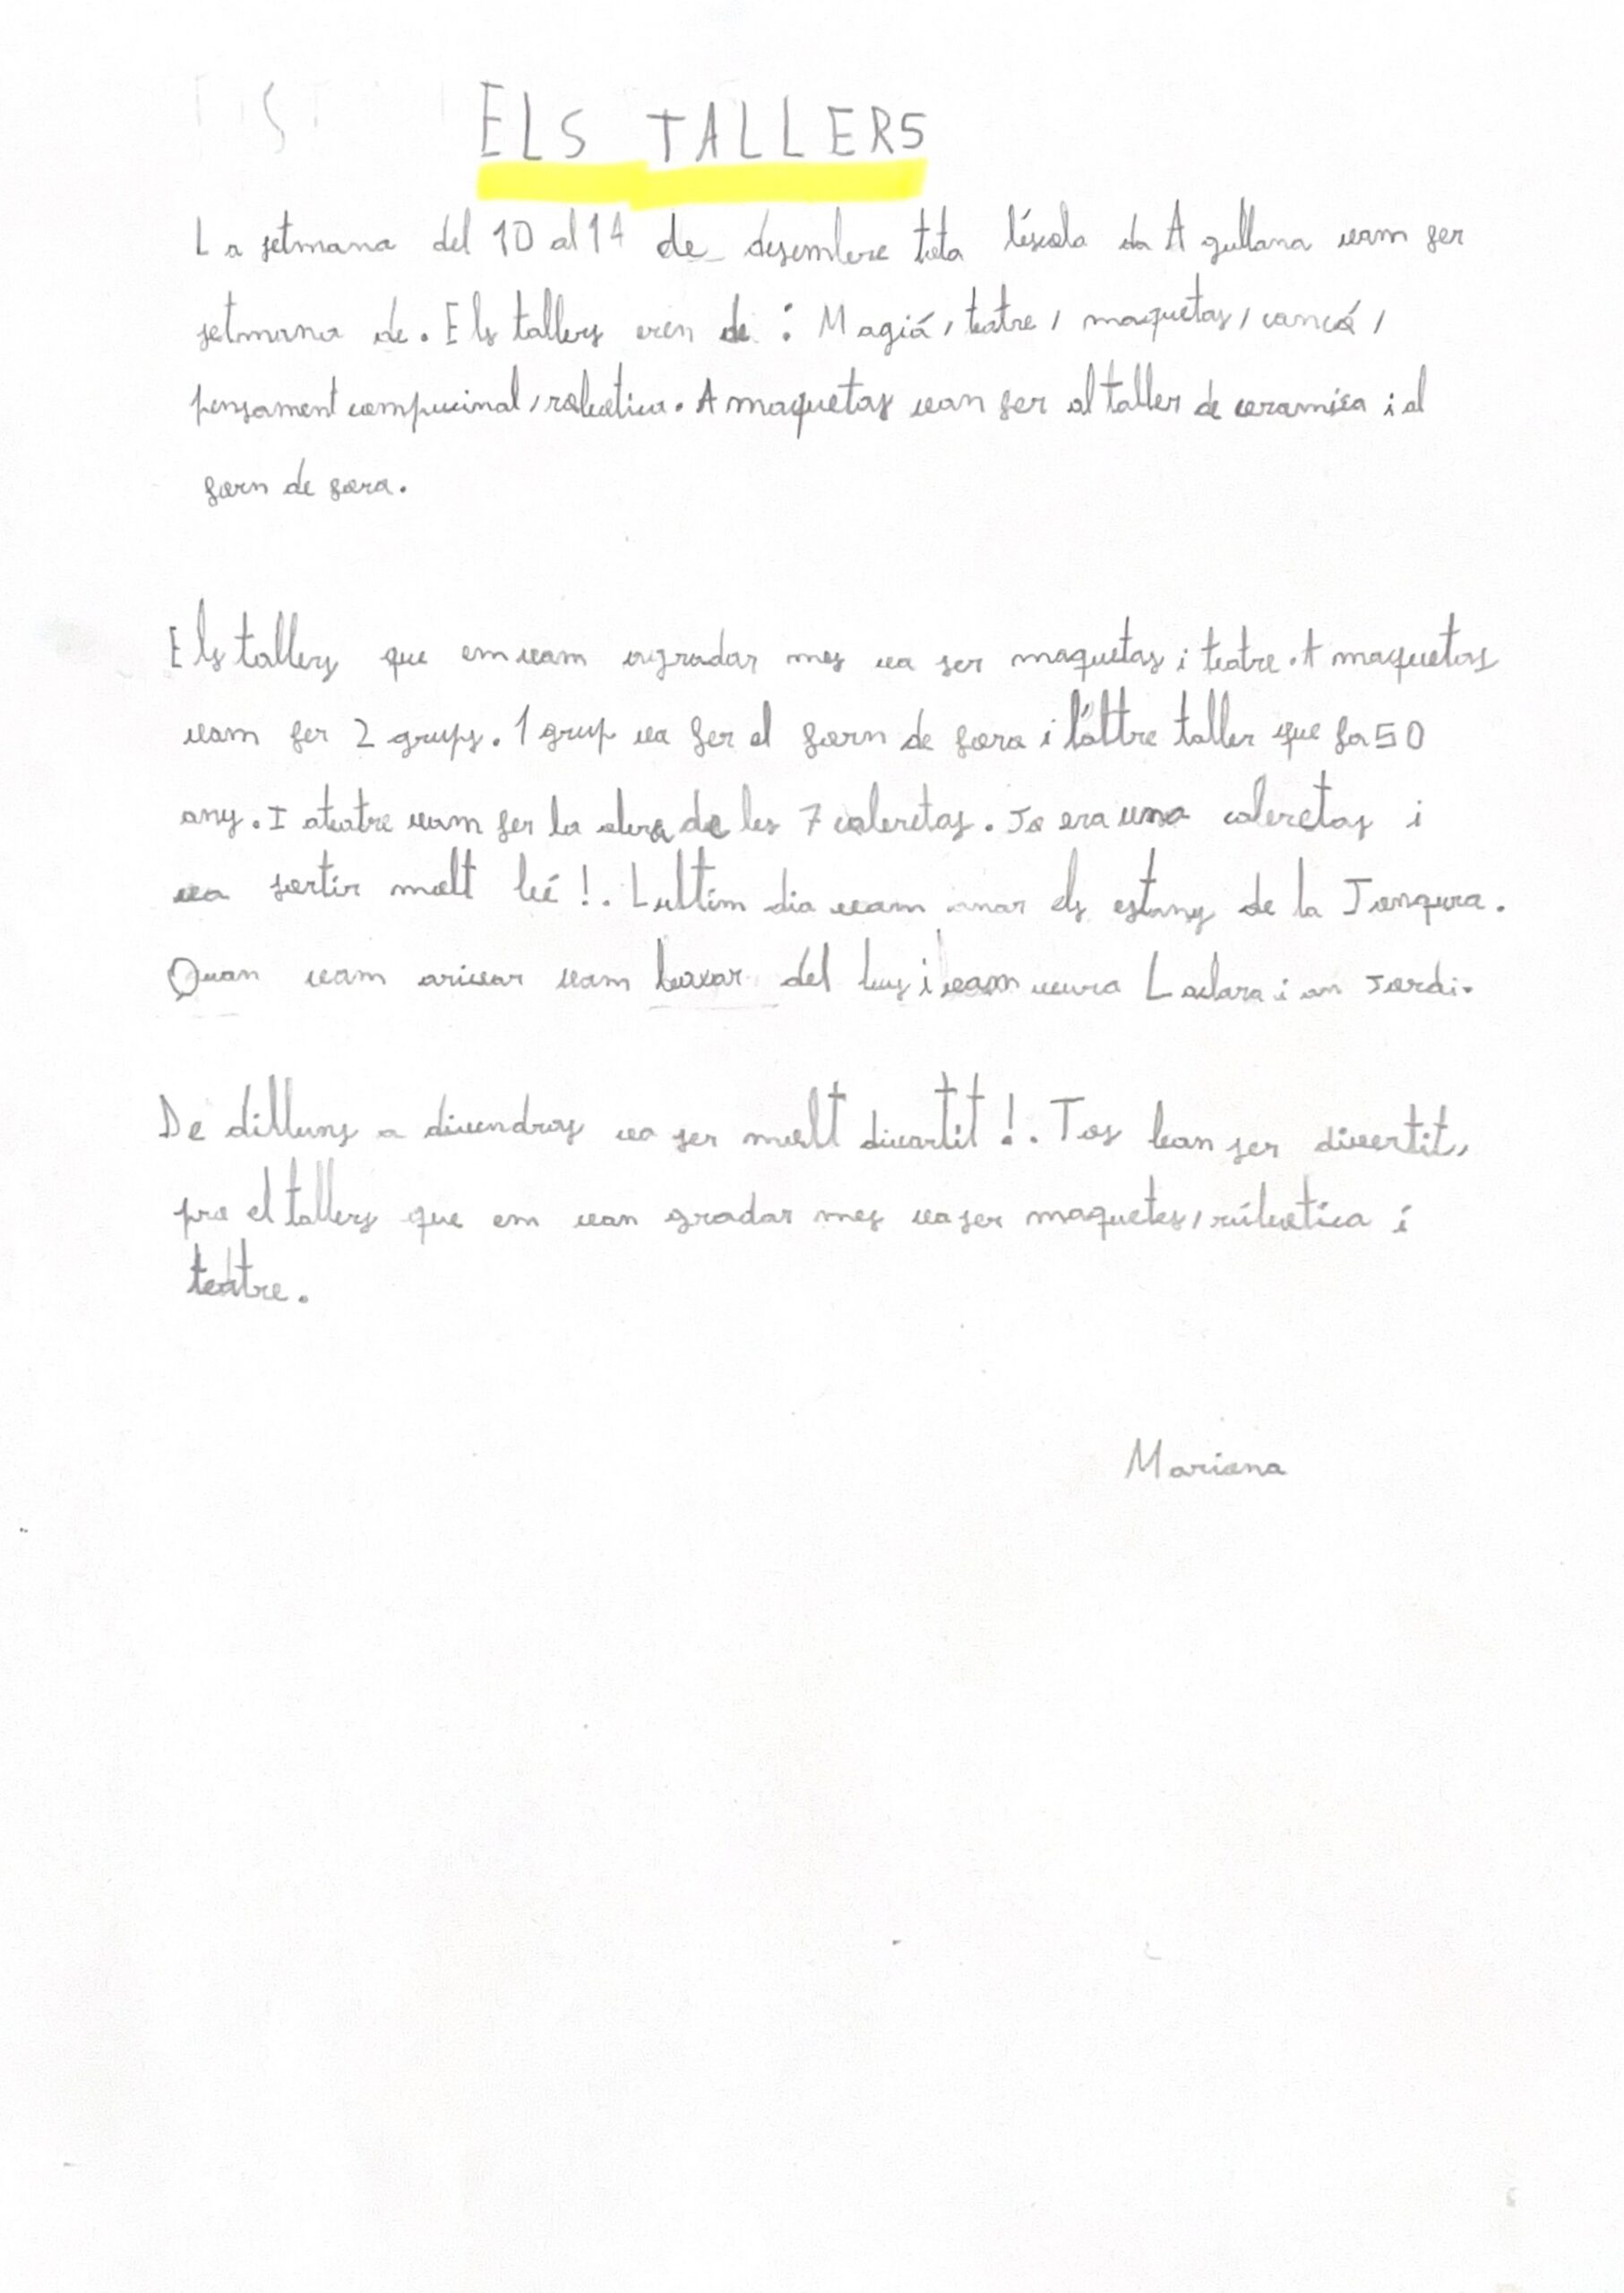 ELS TALLERS
La setmana del 10 al 14 de desembre tota l'éscola da Agullana vam fer
setmana de. Els tallers eren de : Magiá, teatre, maquetas, cancó,
pensament compucinal, robotica. A maquetas van fer al taller de ceramica i al
forn de fora.
Els tallers que em vam agradar mes va ser maquetas i teatre. A maquetas
vam fer 2 grups. 1 grup va fer el forn de fora i l'altre taller que fa 50
any. I ateatre vam fer la obra de les 7 cabretas. Jo era una cabretas i
va sortir molt bé!. Lultim dia vam anar els estanys de la Jonqura.
Quan vam arivar vam baixar del bus i vam veura Laclara i an Jordi.
De dilluns a divendras va ser molt divartit!. Tos ban ser divertit,
pro el tallers que em van gradar mes va ser maquetes, rúbotica i
teatre.
Mariana